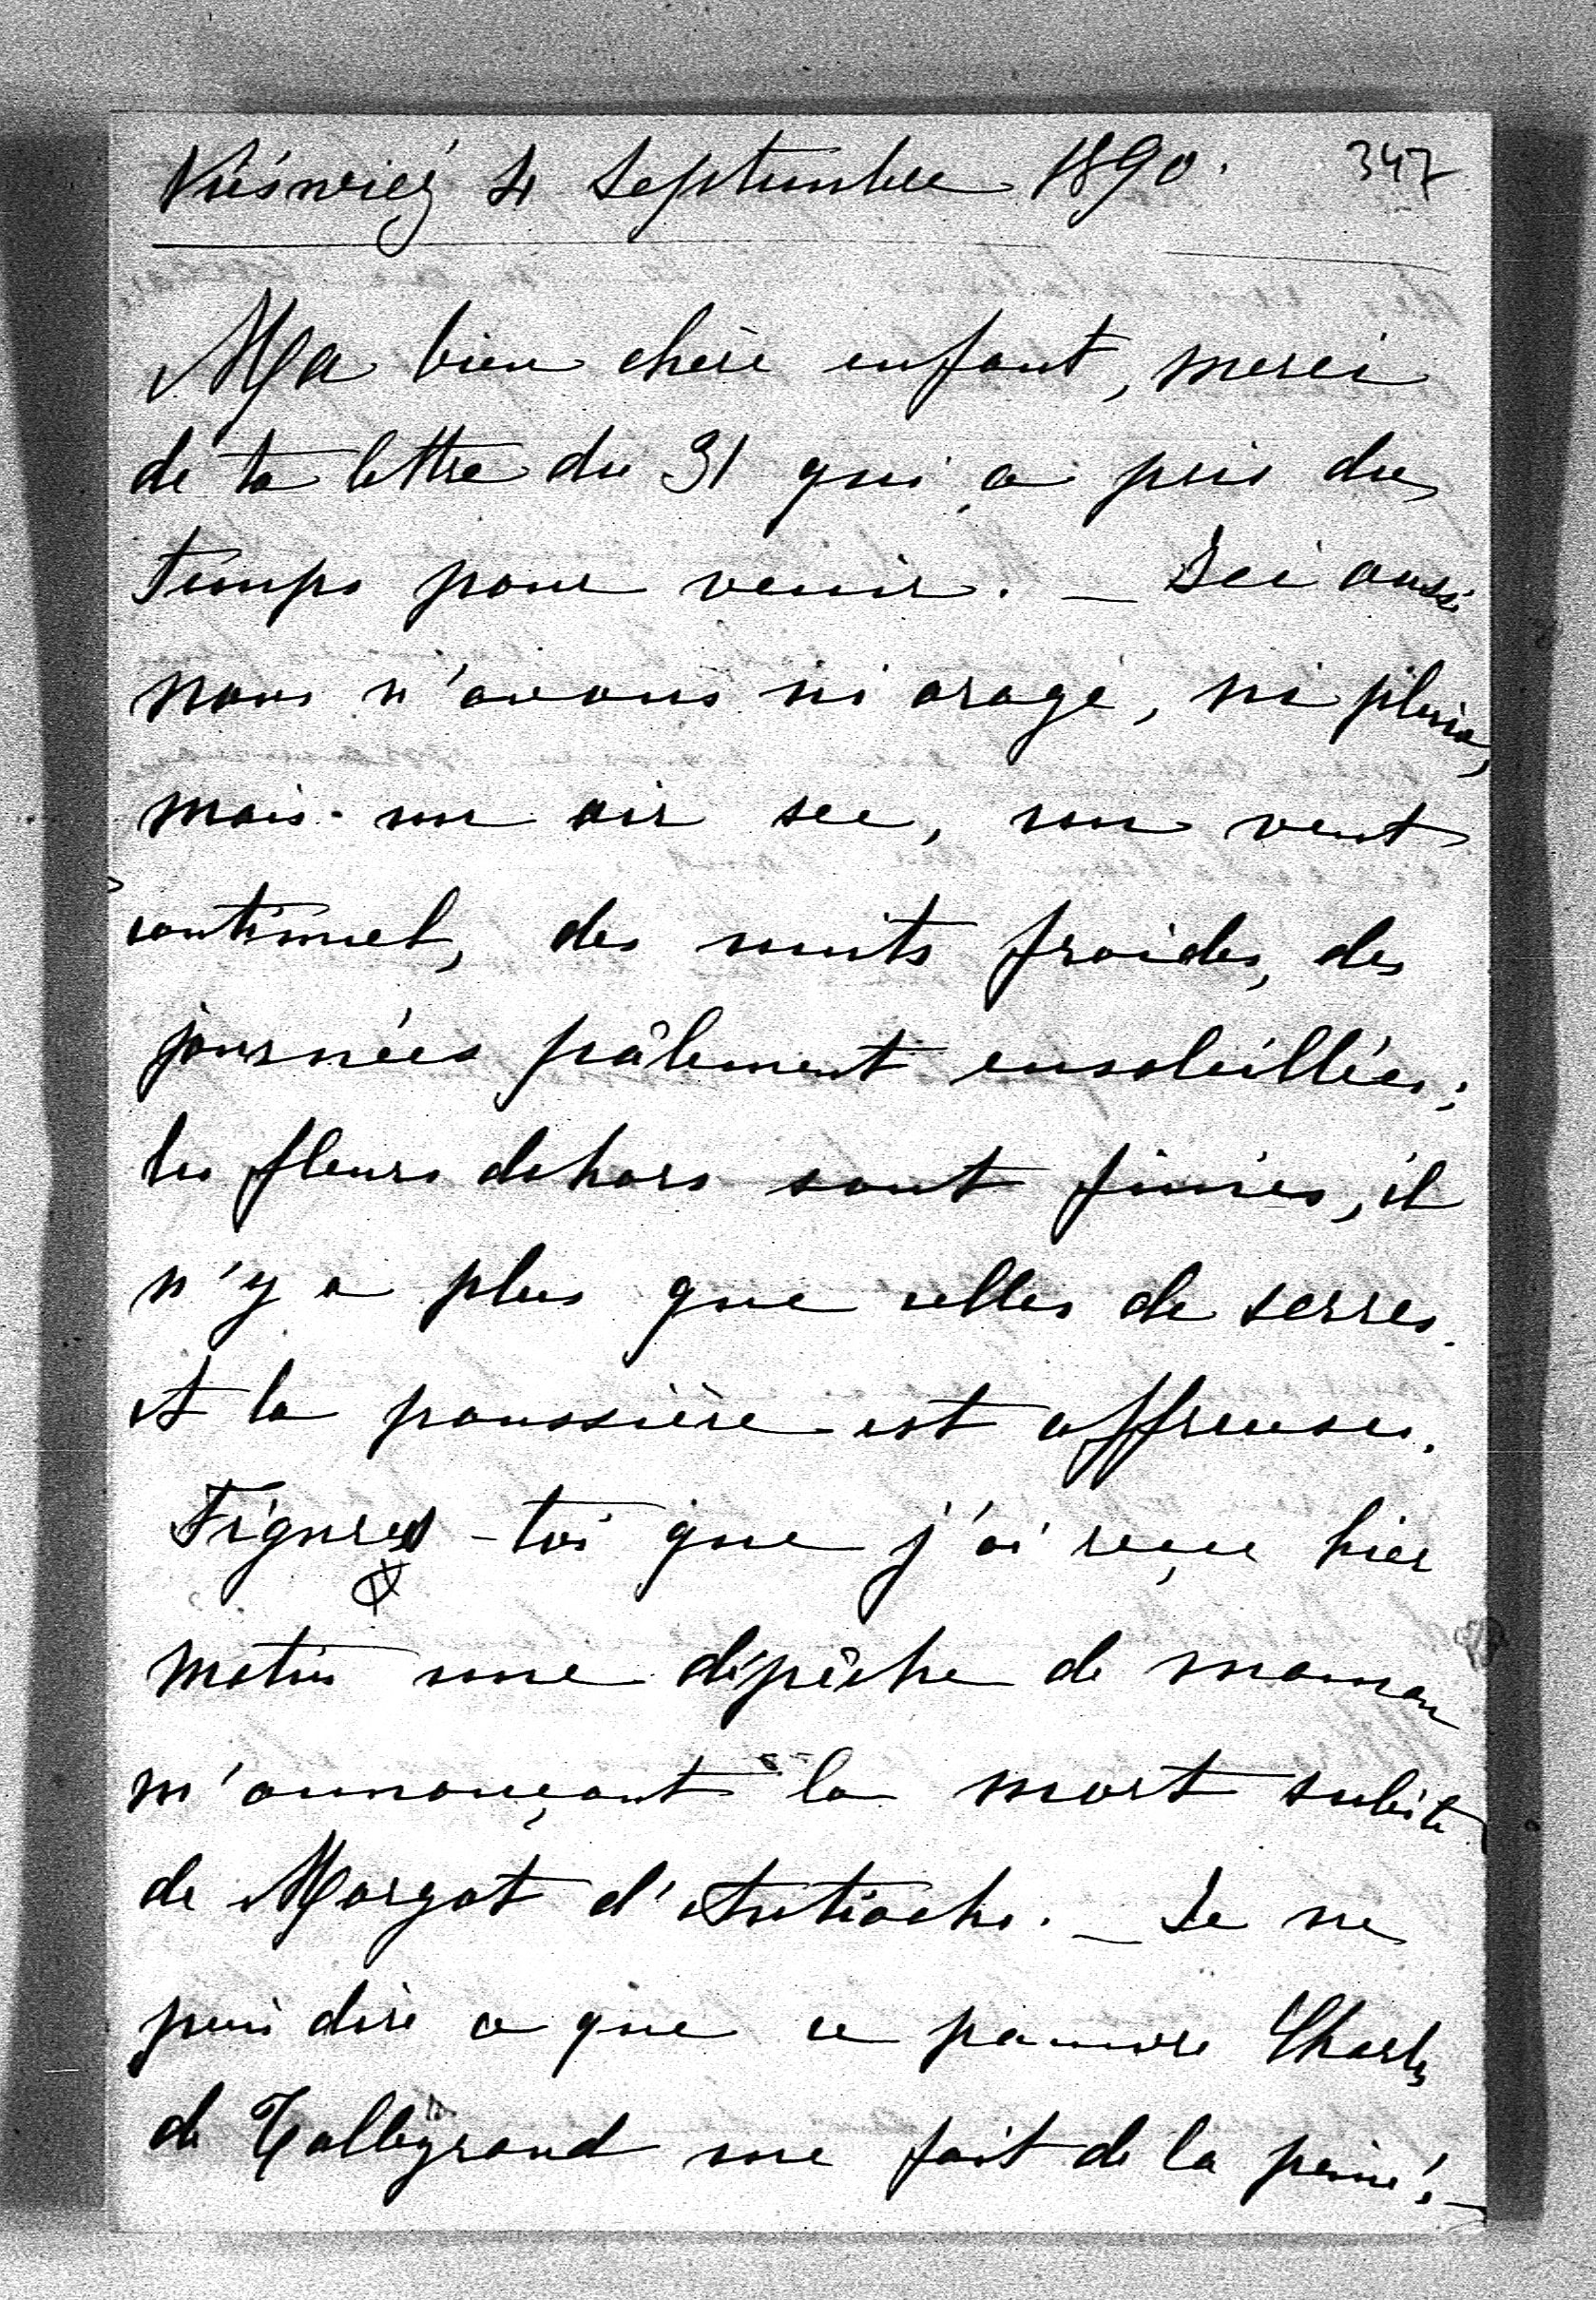 Nieśwież 4 Septembre 1890. 347
Ma bien chère enfant, merci
de ta lettre du 31 qui a pris du
temps pour venir. _ Ici aussi
nous n'avons ni orage, ni pluie,
mais un air sec, un vent
continuel, des nuits froides, des
journées pâlement ensoleillées;
les fleurs dehors sont finies, il
n'y a plus que celles de serres.
Et la poussière est affreuse.
Figures-toi que j'ai reçue hier
matin une dépêche de maman
m'annonçant la mort subite
de Margot d'Antioche. _ Je ne
puis dire ce que ce pauvre Charles
de Talleyrand me fait de la peine! _